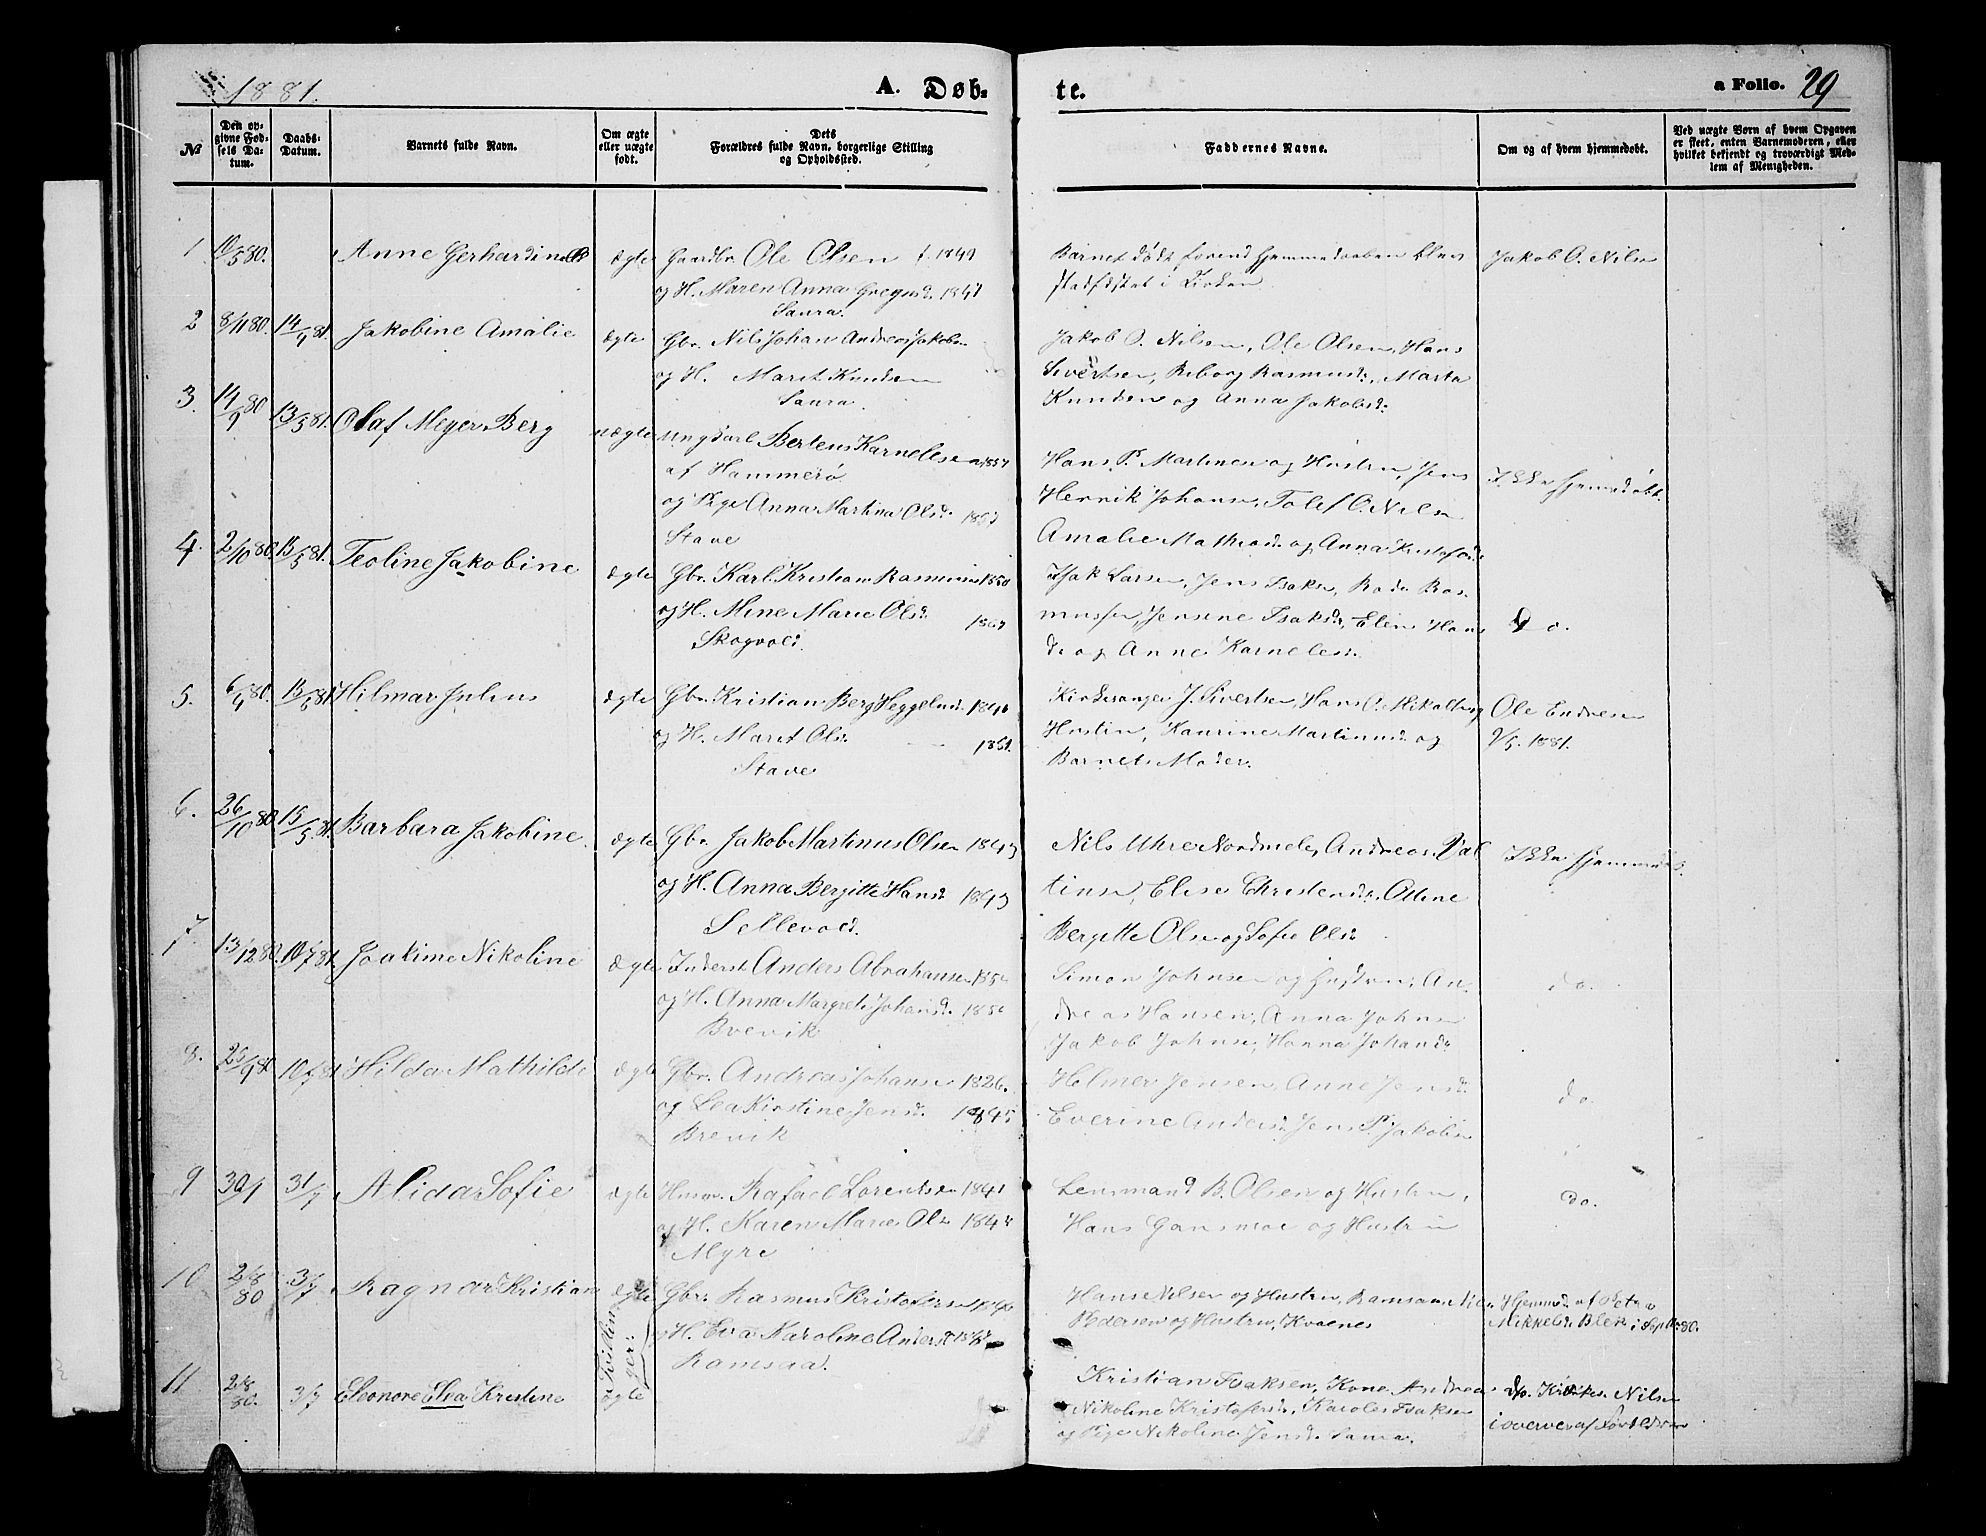 1881.
A. Døb-
te.
a Folio. 29
№
Den op-
givne Fød-
sels Da-
tum.
Daabs-
Datum.
Barnets fulde Navn.
Om ægte
eller uægte
født.
Dets
Forældres fulde Navn, borgerlige Stilling
og Opholdssted.
Faddernes Navne.
Om og af hvem hjemmedøbt.
Ved uægte Børn af hvem Opgaven
er skeet, enten Barnemoderen, eller
hvilket bekjendt og troværdigt Med-
lem af Menigheden.
1 10/5 80. Anne Gerhardine ægte Gaardbr. Ole Olsen f. 1849
og H. Maren Anna Gregusd. 1847
Saura.
Barnet døde forend hjemmedaaben blev
stadfæstet i Kirken
Jakob O. Nilsen
2 8/11 80. 14/1 81. Jakobine Amalie ægte Gbr. Nils Johan Andreas Jakobsen
og H. Maret Knudsen
Saura.
Jakob O. Nilsen, Ole Olsen, Hans
Sivertsen, Rasmusd., Marta
Knudsen og Anna Jakobsd.
3. 14/9 80 13/5 81. Olaf Meyer Berg uægte Ungkarl Berteus Karnelesen 1857
af Hammerø
og Pige Anna Martina Olsd.
Stave
Hans P. Martinsen og Hustru, Jens
Henrik Johansen, Tolef O. Nilsen
Amalie Mathiasd. og Anna Kristofersd.
Ikke hjemmedøbt.
4. 2/10 80. 15/5 81. Teoline Jakobine ægte Gbr. Karl Kristian Rasmussen 1850
og H. Mine Marie Olsd.
Skogvold.
Isak Larsen, Jens Isaksen, Ras-
mussen, Jensine Isaksd., Elen Hans
d. og Anne Karnelesd.
Do.
5. 6/9 80. 15/5 81. Hilmar Julius ægte Gbr. Kristian Berg Heggelund
og H. Maret Olsd. 1851.
Stave
Kirkesanger J. Sivertsen, Hans O. Mikalsen og
Hustru, Kaurine Martinusd. og
Barnets Moder.
Ole Endresen
9/5. 1881.
6. 26/10 80. 15/5 81. Barbara Jakobine. ægte Gbr. Jakob Martinus Olsen 1843
og H. Anna Bergitte Hansd. 1843
Sellevold.
Nils Uhre Nordmele, Andreas Val
tinsen, Elise Christensd., Oline
Bergitte Olsen og Sofie Olsd.
Ikke hjemmed.
7. 13/12 80. 10/7 81. Joakime Nikoline ægte Inderst Anders Abrahamsen
og H. Anna Margrete Johansd.
Brevik
Simon Johnsen og Hustru, An-
dreas Hansen, Anna Johnsen
Jakob Johnsen, Hanna Johansd.
do.
8. 25/9 80 10/7 81 Hilda Mathilde ægte Gbr. Andreas Johansen 1826.
og Lea Kirstine Jensd. 1845
Brevik
Helmer Jensen, Anne Jensd.
Everine Andersd. Jens P. Jakobsen
do.
9 30/1 3/7 Alida Sofie ægte Husm. Rafael Lorentsen 1841
og H. Karen Marie Olsd. 1844
Myre
Lensmand B. Olsen og Hustru,
Hans Gansmoe og Hustru
do.
10 2/8 80 3/7 Ragnar Kristian ægte Gbr. Rasmus Kristofersen
og H. Eva Karoline Andersd.
Ramsaa.
Tvillin
ger:
Hans Nilsen og Hustru, Ramsaa, Nils
Pedersen og Hustru, Kvænes
Hjemmed. af Petra
Mikkelsd. Bleik i Septbr. 80.
11 2/8 80. 3/7 Eleonore Elea Kristine ægte
Kristian Isaksen, Kone Andrea
Nikoline Kristofersd., Karoles Isaksen
og Pige Nikoline Jensd. Saura.
do. Nilsen
i overvær af Forældrene